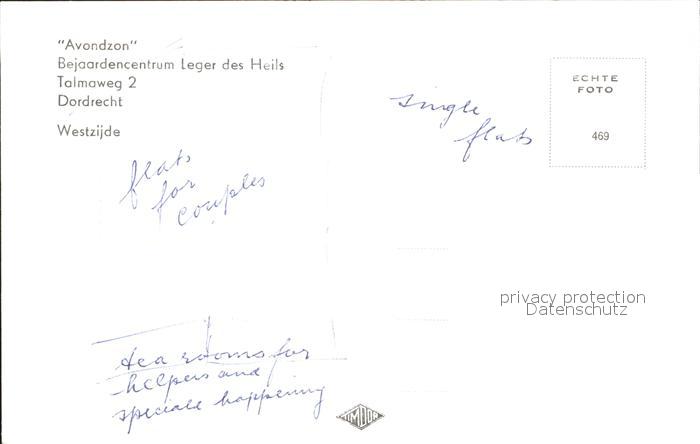 "Avondzon"
Bejaardencentrum Leger des Heils
Talmaweg 2
Dordrecht
Westzijde
single
flats
ECHTE
FOTO
469
flats
for
couples
privacy protection
Datenschutz
tea rooms for
helpers and
speciale happening
TIMDOR